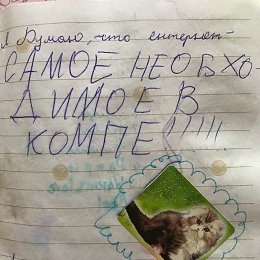 Я думаю, что интернет-
САМОЕ НЕОБХО-
ДИМОЕ В
КОМПЕ!!!!!